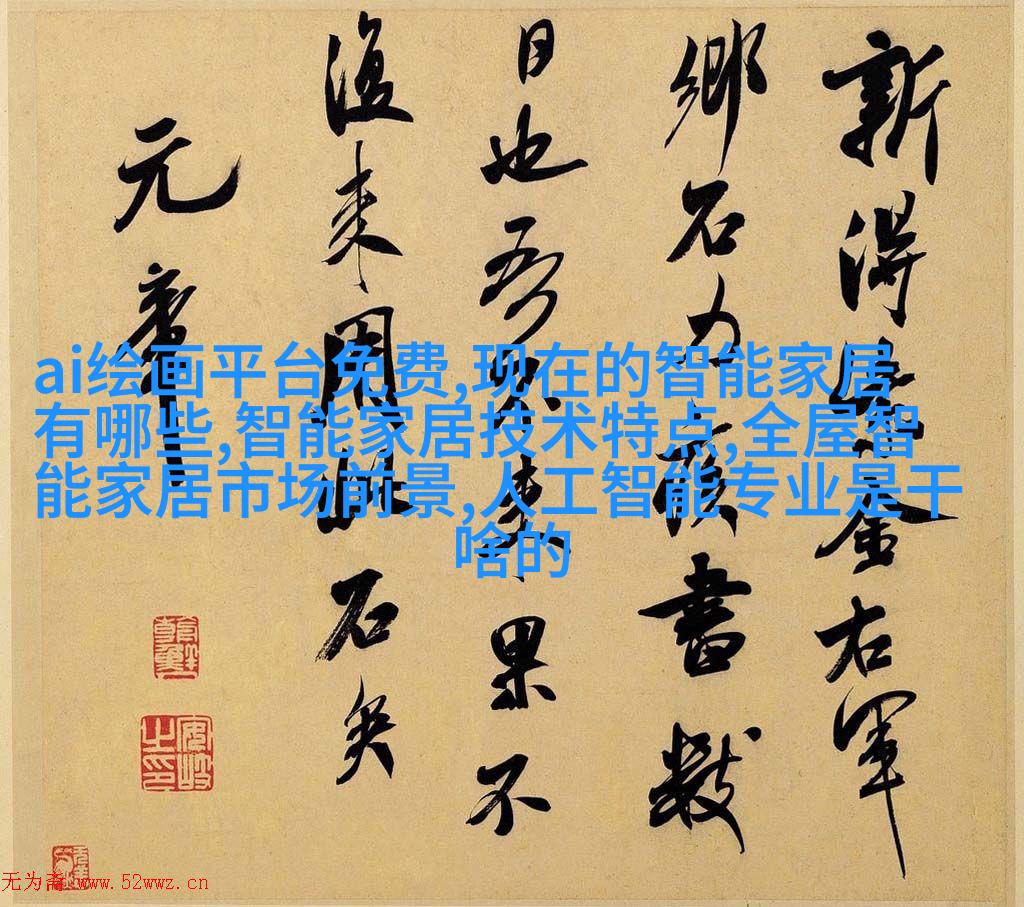 新得紫金右軍
鄉石力疾書數
日也吾不來果不
復來用此石矣
元章
ai绘画平台免费,现在的智能家居
有哪些,智能家居技术特点,全屋智
能家居市场前景,人工智能专业是干
啥的
无为斋 www.52wwz.cn